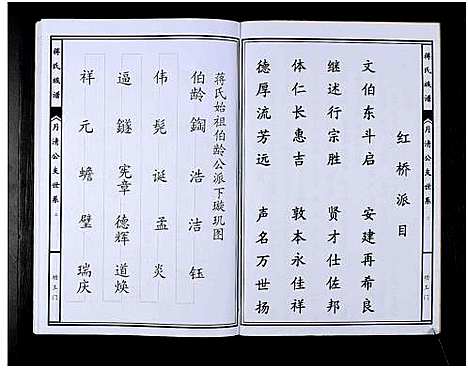 红桥派目
文伯东斗启　安建再希良
继述行宗胜　贤才仕佐邦
体仁长惠吉　敦本永佳祥
德厚流芳远　声名万世扬
蒋氏族谱
月清公支世系
竹工门
蒋氏始祖伯龄公派下璇玑图
伯龄　鍧　浩　洁　钰
伟　髡　诞　孟　炎
逼　鐩　宪章　德辉　道焕
祥　元　蟾　璧　瑞庆
蒋氏族谱
月清公支世系
竹工门